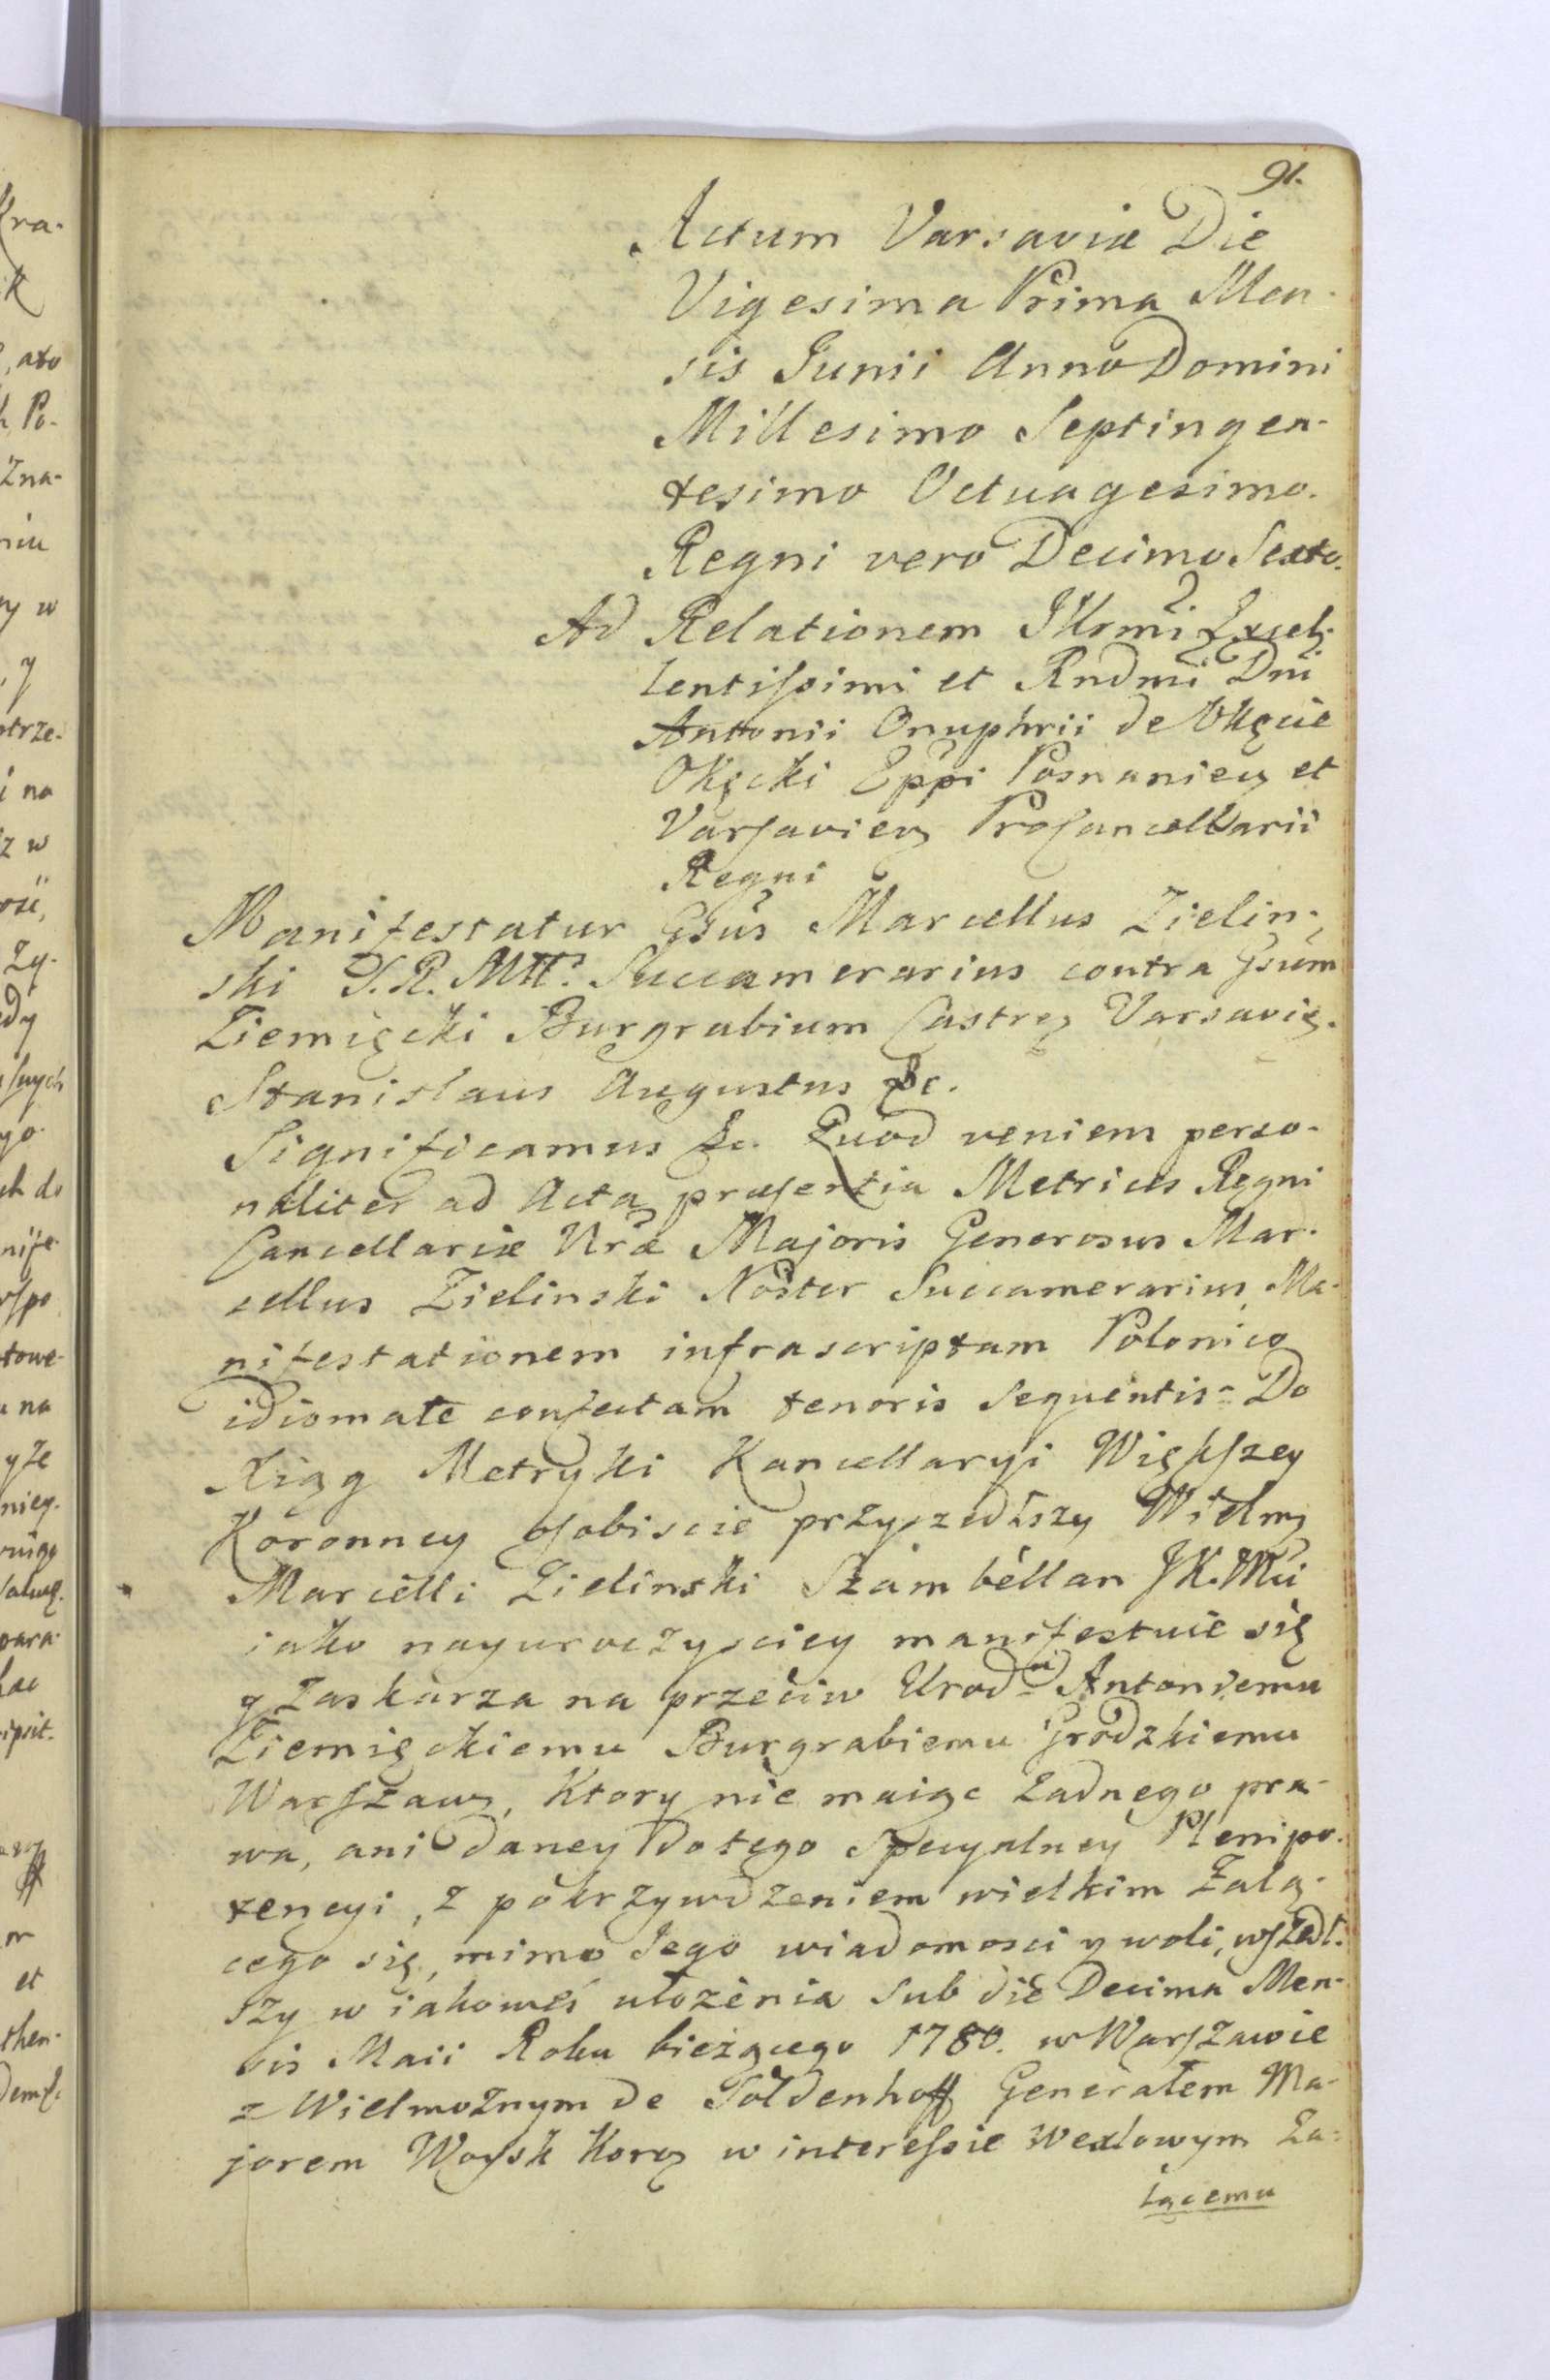 91.
Actum Varsaviæ Die
Vigesima Prima Men-
sis Junii Anno Domini
Millesimo Septingen-
tesimo Octuagesimo.
Regni vero Decimo Sexto.
Ad Relationem Illrmi Excel-
lentissimi et Rndmi Dni
Antonii Onuphrii de Okęcie
Okęcki Eppi Posnanien et
Varsavien Procancellarii
Regni
Manifestatur Gsus Marcellus Zielin-
ski S. R. Mtt. Succamerarius contra Gsum
Ziemięcki Burgrabium Castren Varsavię.
Stanislaus Augustus &c.
Significamus &c. Quod veniens perso-
naliter ad Acta præsentia Metrices Regni
Cancellariæ Nræ Majoris Generosus Mar-
cellus Zielinski Noster Succamerarius, Ma-
nifestationem infrascriptam Polonico
idiomate confectam tenoris sequentis = Do
Xiąg Metryki Kancellaryi Większey
Koronney osobiscie przyszedłszy Wielmy
Marcelli Zielinski Szambellan JK.Mci
iako nayuroczysciey manifestuie się
y zaskarza na przeciw Urodmu Antoniemu
Ziemięckiemu Burgrabiemu Grodzkiemu
Warszaw, Ktory nie maiąc żadnego pra-
wa, ani daney do tego specyalney Plenipo-
tencyi, z pokrzywdzeniem wielkim Żalą-
cego się, mimo Jego wiadomosci y woli, wszedł-
szy w iakoweś ułożenia sub die Decima Men-
sis Maii Roku bieżącego 1780. w Warszawie
z Wielmożnym de Poldenhoff Generałem Ma-
jorem Woysk Koron w interessie wexlowym Ża-
lącemu
Kra-
k
Po-
zna-
niu
y w
, y
otrze-
i na
z w